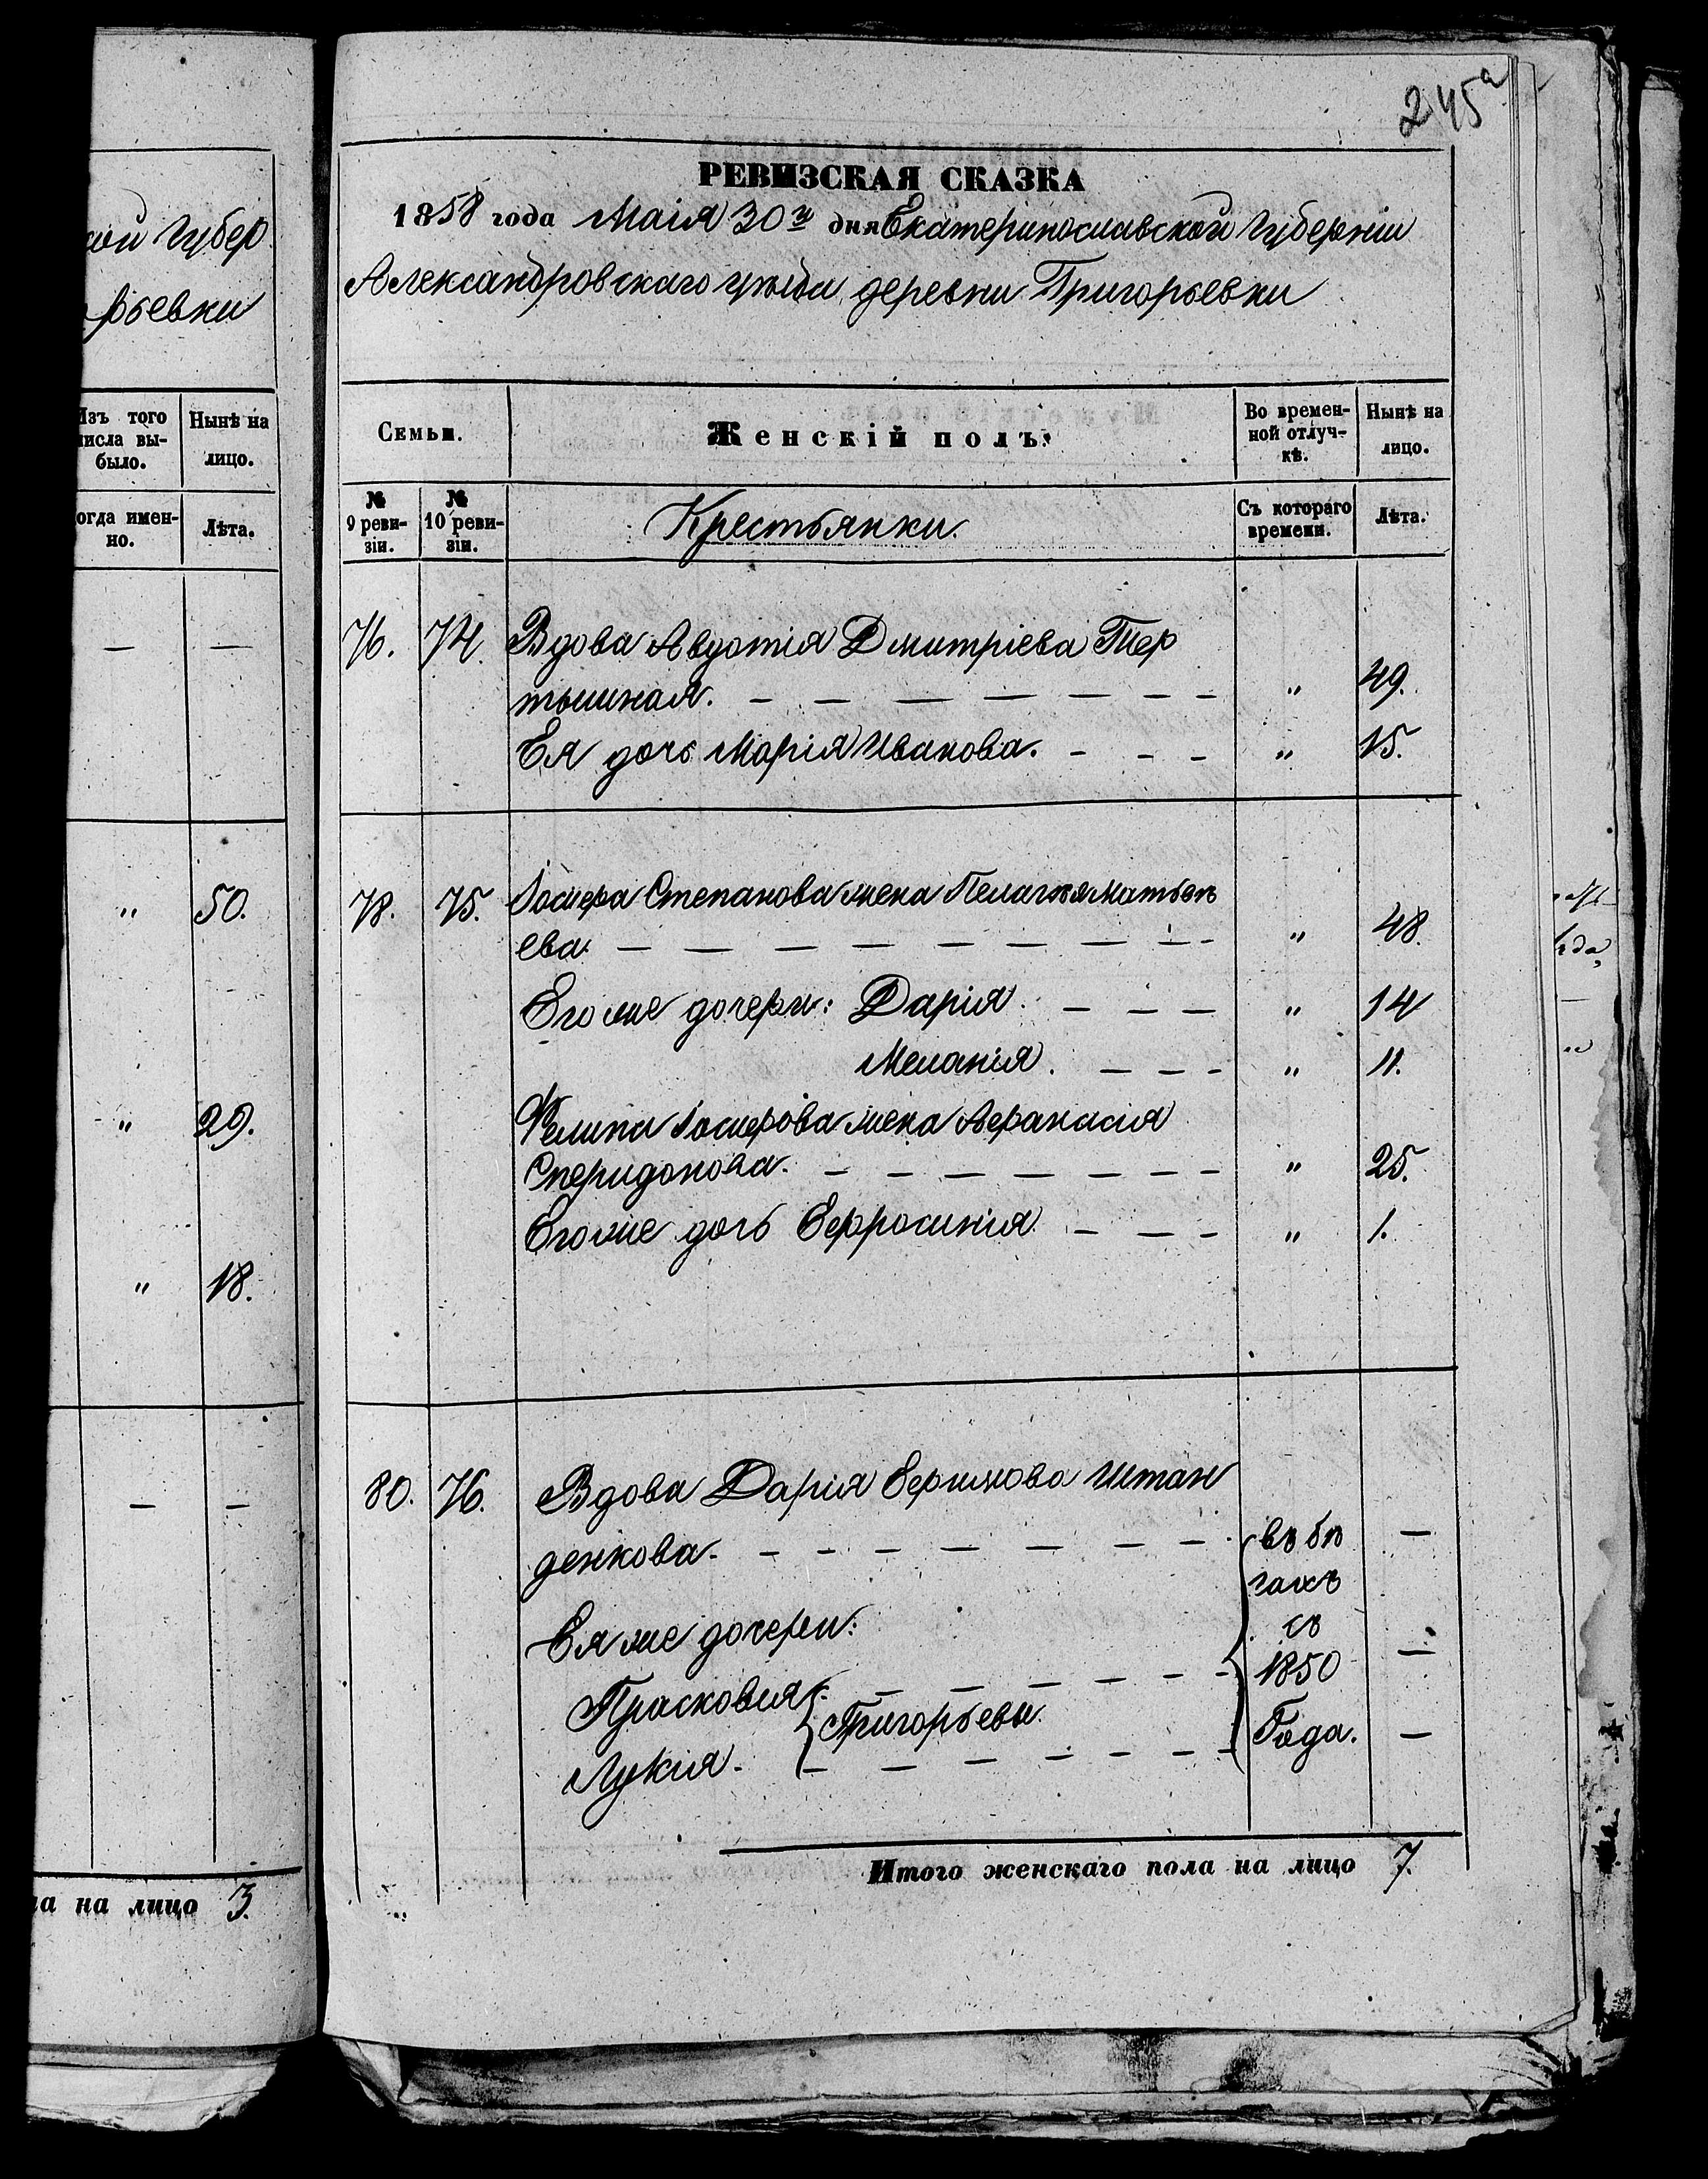 245а
кой Губер
рьевки
Изъ того числа вы-было.
Ныне на лицо.
огда имен-но.
Лѣта.
— —
„ 50.
„ 29.
„ 18.
— —
на лицо 3.
РЕВИЗСКАЯ СКАЗКА
1858 года Маія 30го дня Екатеринославской Губерніи
Александровскаго уѣзда деревни Григорьевки
Семьи.
Женскій полъ.
Во времен-
ной отлуч-
кѣ.
Нынѣ на
лицо.
№
9 реви-
зіи.
№
10 реви-
зіи.
Крестьянки.
Съ котораго
времени.
Лѣта.
76. 74. Вдова Авдотія Дмитріева Тер
тышная. — — — — — — — „ 49.
Ея дочь Марія Иванова. — — — „ 15.
78. 75. Іосифа Степанова жена Пелагѣя Матвѣ
ева. — — — — — — — — „ 48.
Его же дочери: Дарія. — — — „ 14
Меланія. — — — „ 11.
Филипа Іосифова жена Афанасія
Сперидонова. — — — — — — — „ 25.
Его же дочь Ефросинія. — — — „ 1.
80. 76. Вдова Дарія Ефимова Штан
денкова. — — — — — — — въ бѣ —
гахъ
Ея же дочери: съ
Прасковия. — — — — — 1850 —
Григорьевы.
Лукія. — — — — — — Года. —
Итого женскаго пола на лицо 7.